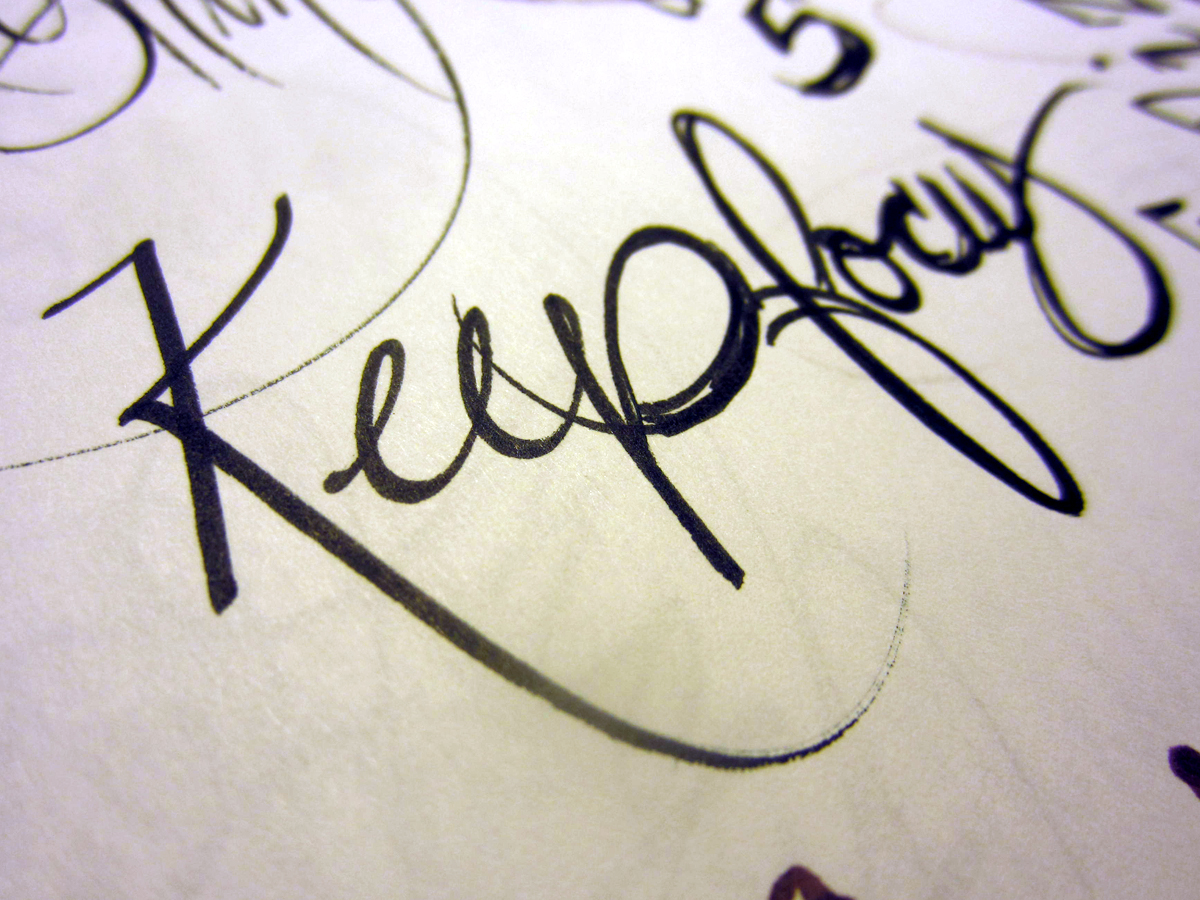 5
Keep focus